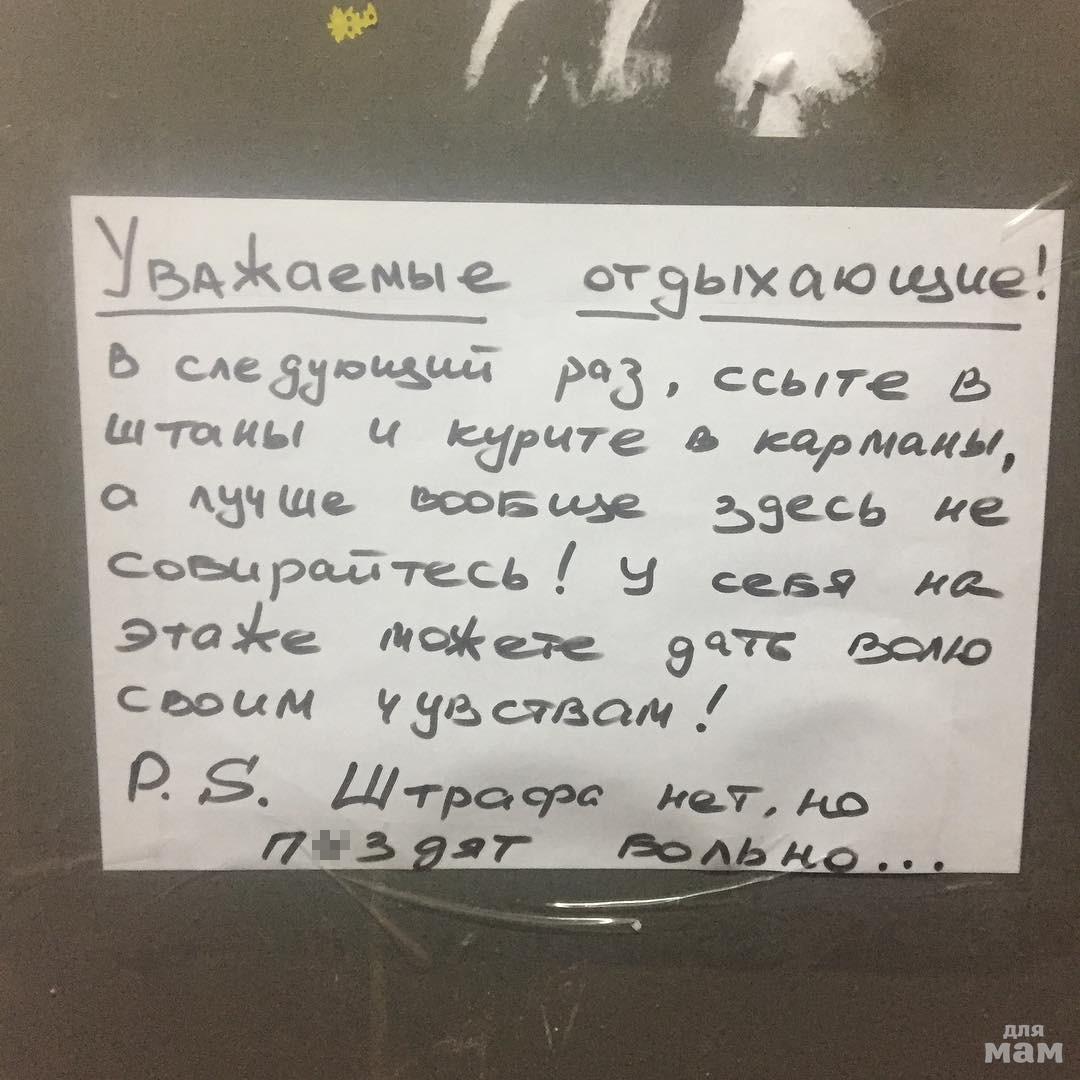 Уважаемые отдыхающие!
В следующий раз, ссыте в
штаны и курите в карманы,
а лучше вообще здесь не
собирайтесь! У себя на
этаже можете дать волю
своим чувствам!
P.S. Штрафа нет, но
п здят больно...
для
мам